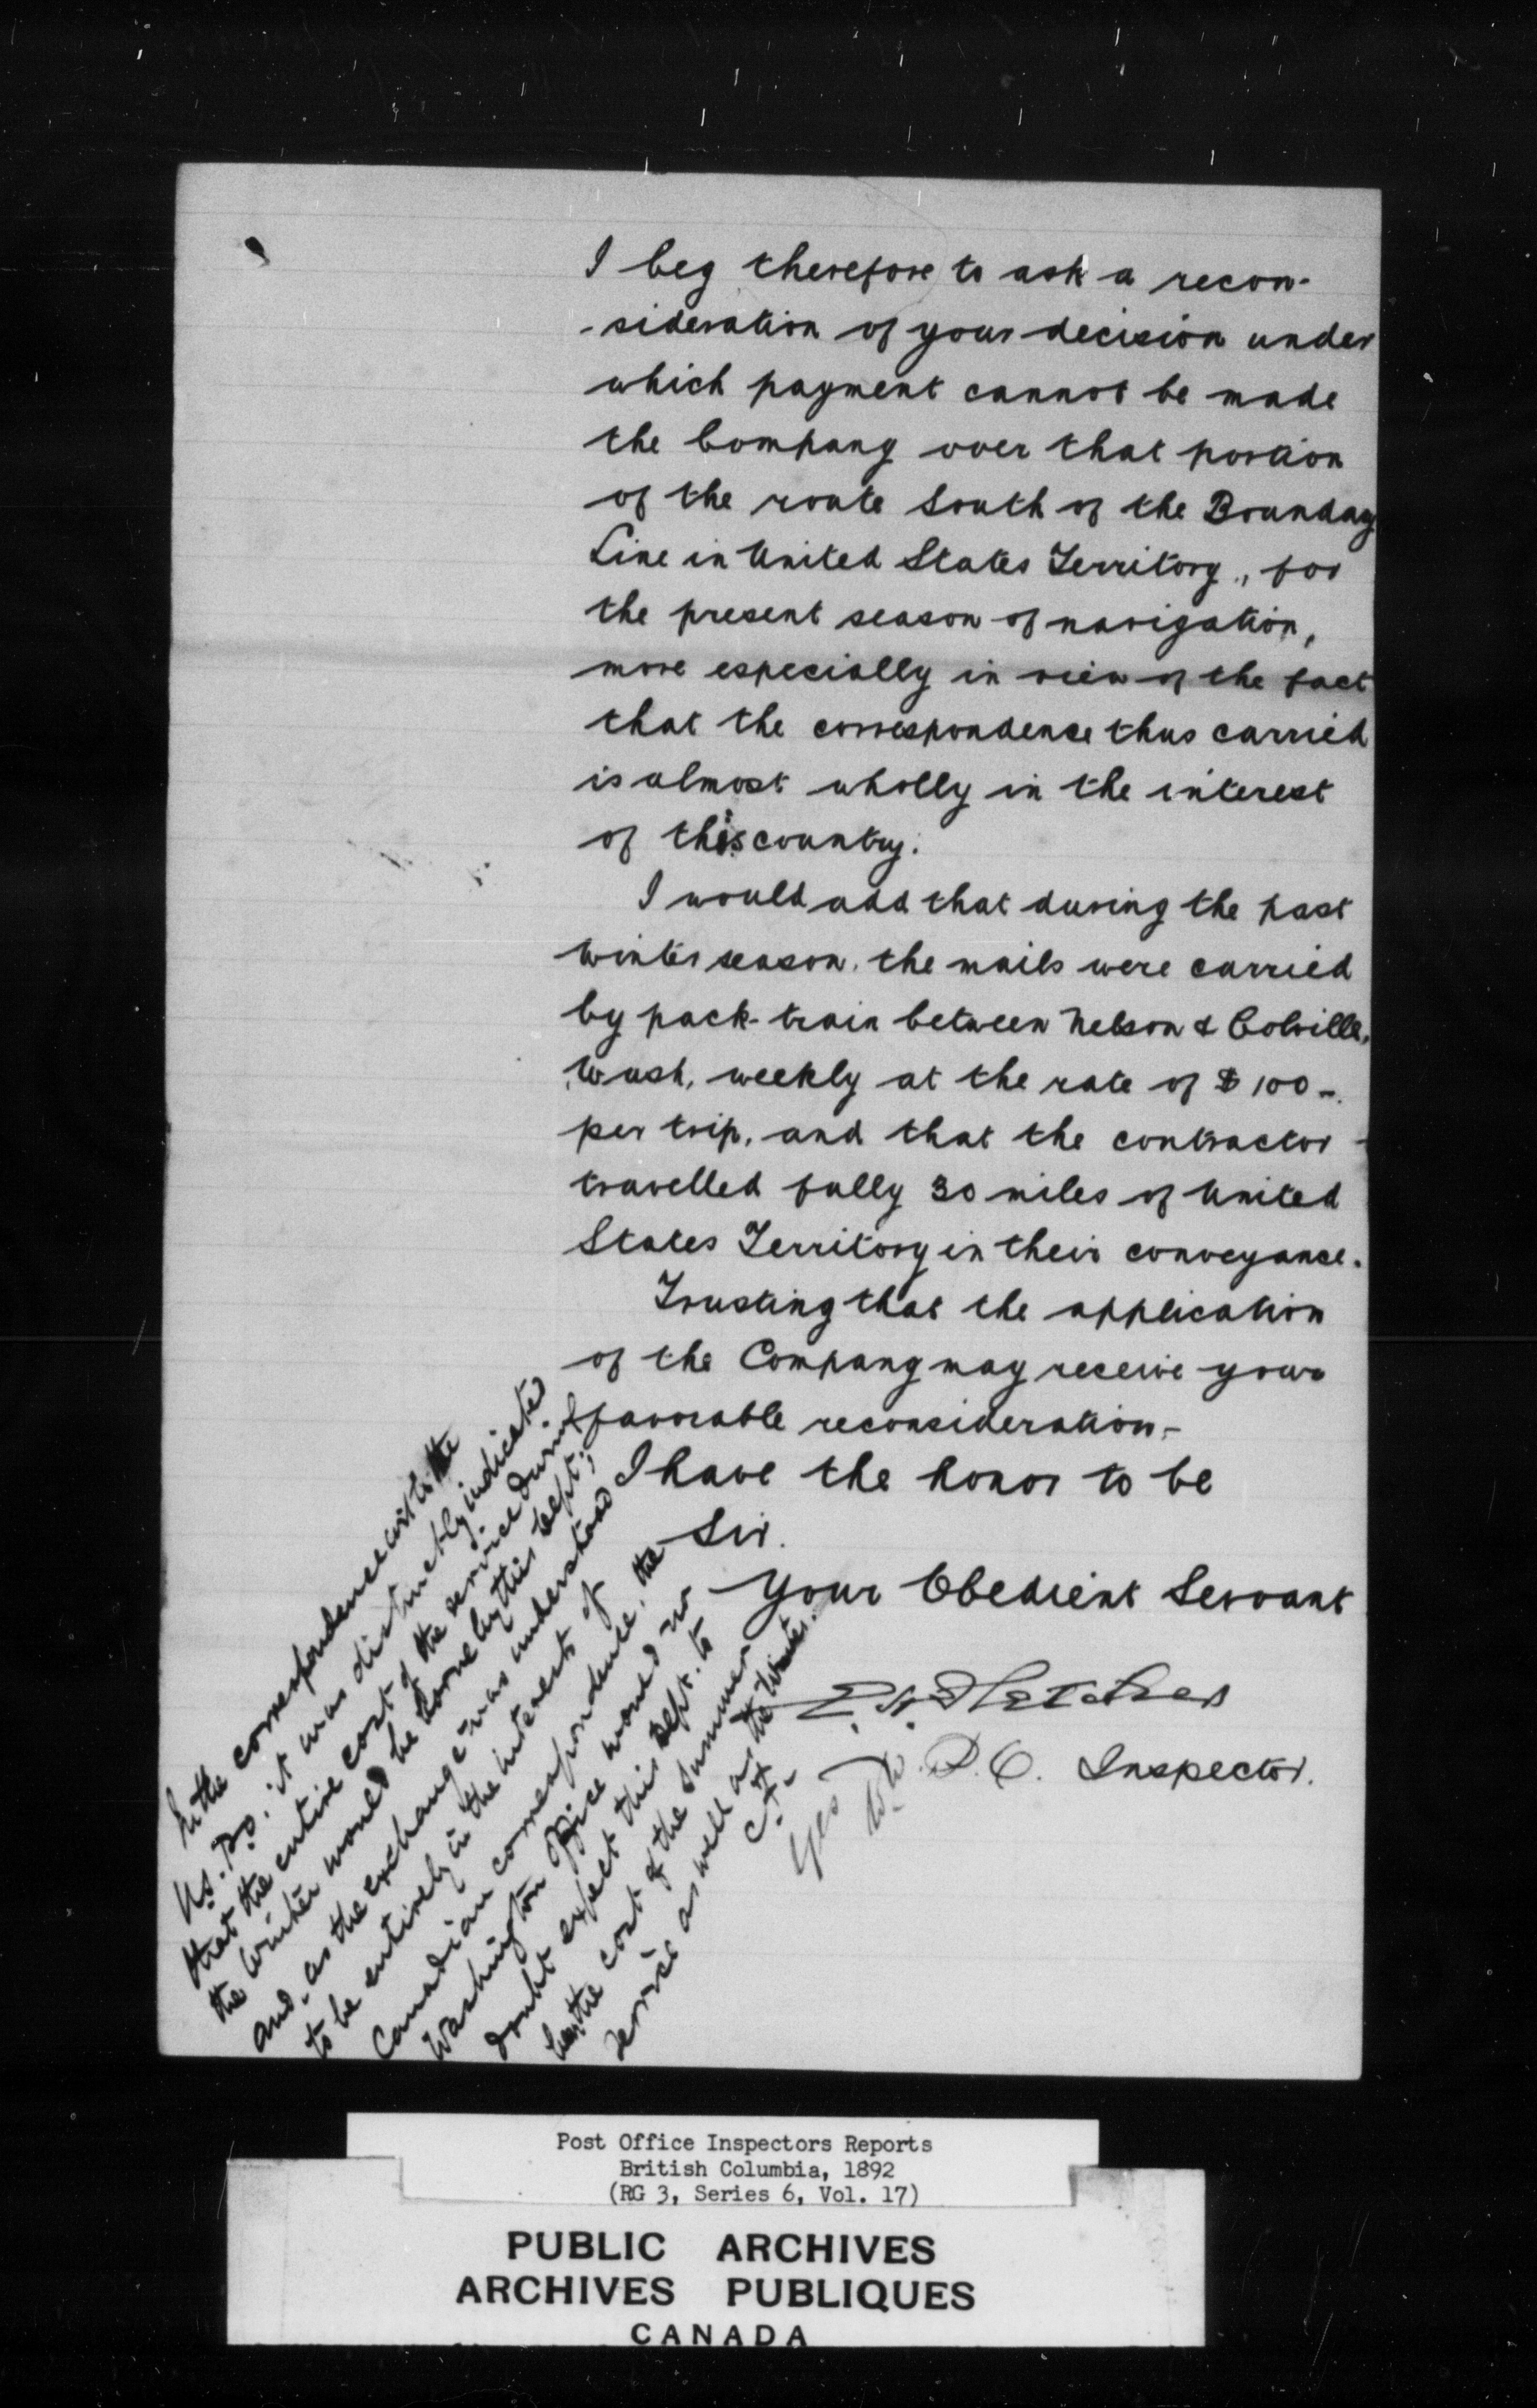 I beg therefore to ask a recon-
-sideration of your decision under
which payment cannot be made
the Company over that portion
of the route South of the Boundary
Line in United States Territory, for
the present season of navigation,
more especially in view of the fact
that the correspondence thus carried
is almost wholly in the interest
of this country.
I would add that during the past
Winter season, the mails were carried
by pack-train between Nelson & Colville,
Wash, weekly at the rate of $100-
per trip, and that the contractor
travelled fully 30 miles of United
States Territory in their conveyance.
Trusting that the application
of the Company may receive your
favorable reconsideration,-
I have the honor to be
Sir.
Your Obedient Servant
E. H. Fletcher
P.O. Inspector.
In the correspondence with the
U.S. P.O. it was distinctly indicated
that the entire cost of the service during
the Winter would be borne by this Dept;
and, as the exchange was understood
to be entirely in the interests of the
Canadian correspondence, the
Washington Office would no
doubt expect this Dept. to
bear the cost of the Summer
service as well as of the Winter.
Yes
Post Office Inspectors Reports
British Columbia, 1892
(RG 3, Series 6, Vol. 17)
PUBLIC ARCHIVES
ARCHIVES PUBLIQUES
CANADA